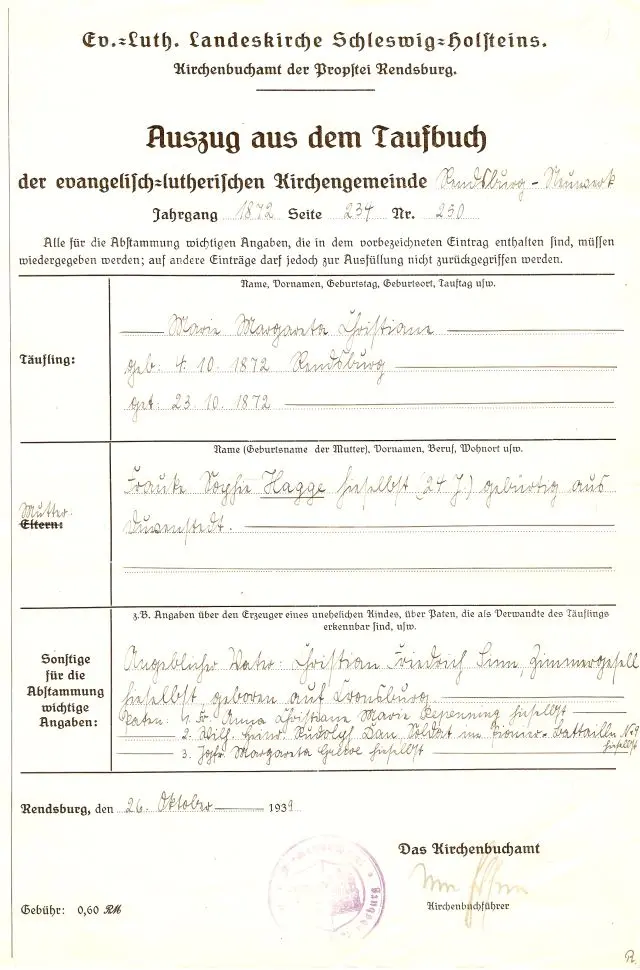 Ev.=Luth. Landeskirche Schleswig=Holsteins.
Kirchenbuchamt der Propstei Rendsburg.
Auszug aus dem Taufbuch
der evangelisch=lutherischen Kirchengemeinde Rendsburg - Neuwerk
Jahrgang 1872 Seite 234 Nr. 230
Alle für die Abstammung wichtigen Angaben, die in dem vorbezeichneten Eintrag enthalten sind, müssen
wiedergegeben werden; auf andere Einträge darf jedoch zur Ausfüllung nicht zurückgegriffen werden.
Name, Vornamen, Geburtstag, Geburtsort, Tauftag usw.
Täufling:
Marie Margareta Christiane
geb: 4. 10. 1872 Rendsburg
get: 23. 10. 1872
Name (Geburtsname der Mutter), Vornamen, Beruf, Wohnort usw.
Mutter:
Eltern:
Frauke Sophie Hagge hieselbst (24 J.) gebürtig aus
Duvenstedt.
z.B. Angaben über den Erzeuger eines unehelichen Kindes, über Paten, die als Verwandte des Täuflings
erkennbar sind, usw.
Sonstige
für die
Abstammung
wichtige
Angaben:
Angeblicher Vater: Christian Friedrich Sinn, Zimmergesell
hieselbst, geboren auf Kronsburg
Paten: 1. Fr. Anna Christiane Marie Repenning hieselbst
2. Wilh. Heinr. Rudolph Dau Soldat im Pionier-Battaillon N. 9
hieselbst
3. Jgfr. Margareta hieselbst
Rendsburg, den 26. Oktober 1939
Das Kirchenbuchamt
Kirchenbuchführer
Gebühr: 0,60 RM